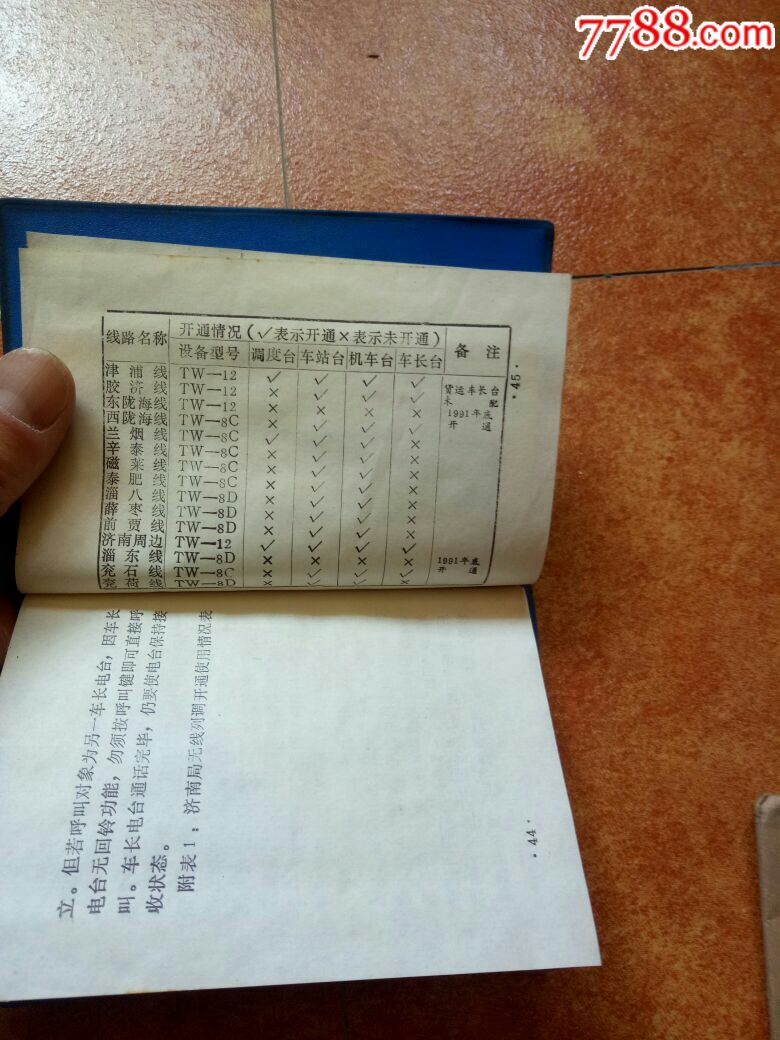 7788.com
线路名称 开通情况（✓表示开通×表示未开通） 备注
设备型号 调度台 车站台 机车台 车长台
津浦线 TW—12 ✓ ✓ ✓ ✓
胶济线 TW—12 × ✓ ✓ ✓ 货运车长台未配
东陇海线 TW—12 × × × × 1991年底开通
西陇海线 TW—8C × ✓ ✓ ✓
兰烟线 TW—8C ✓ ✓ ✓ ×
辛泰线 TW—8C × ✓ ✓ ×
磁莱线 TW—8C × ✓ ✓ ×
泰肥线 TW—8C × ✓ ✓ ×
淄八线 TW—8D × ✓ ✓ ×
薛枣线 TW—8D × ✓ ✓ ×
前贾线 TW—8D × ✓ ✓ ×
济南周边 TW—12 ✓ ✓ ✓ ✓
淄东线 TW—8D × × × × 1991年底开通
兖石线 TW—8C × ✓ ✓ ✓
兖荷线 TW—8D × ✓ ✓ ✓
·45·
立。但若呼叫对象为另一车长电台，因车长
电台无回铃功能，勿须按呼叫键即可直接呼
叫。车长电台通话完毕，仍要使电台保持接
收状态。
附表1：济南局无线列调开通使用情况表
·44·